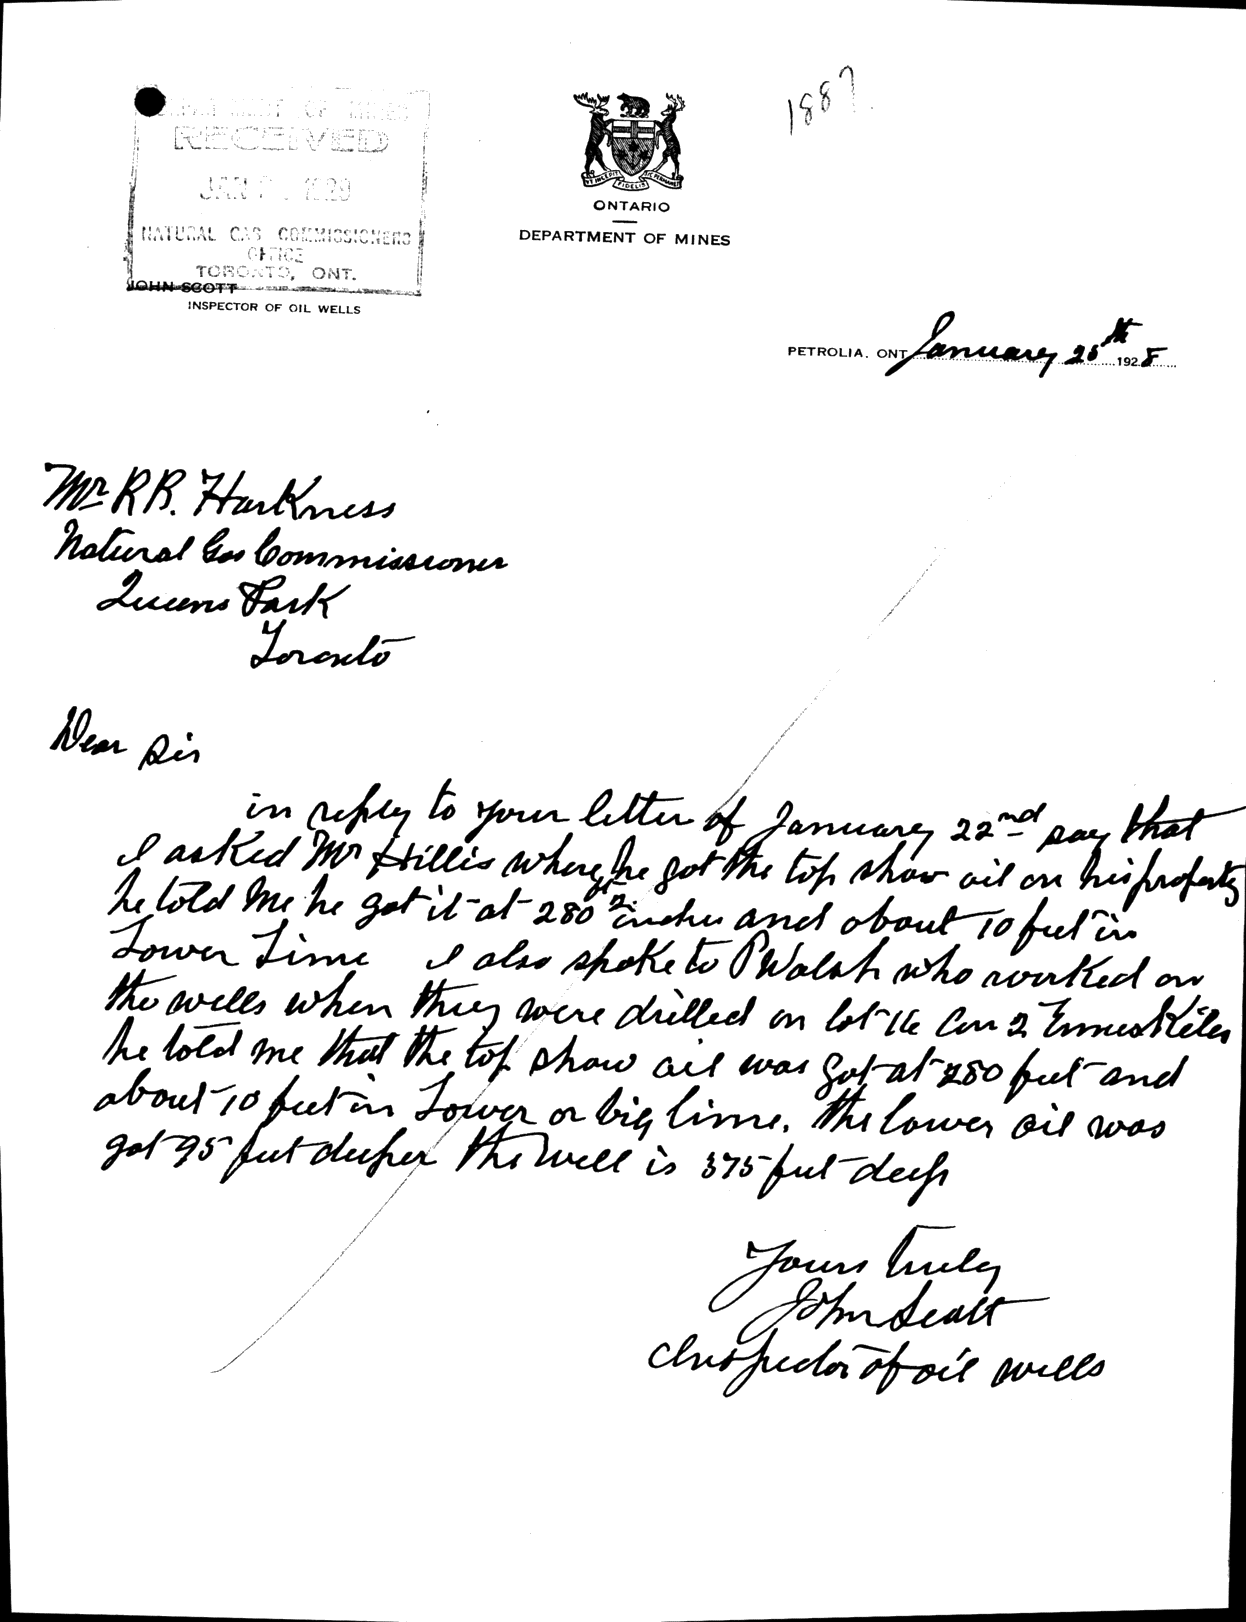 1887.
DEPARTMENT OF MINES
RECEIVED
JAN 1929
NATURAL GAS COMMISSIONERS
OFFICE
TORONTO, ONT.
JOHN SCOTT
INSPECTOR OF OIL WELLS
ONTARIO
DEPARTMENT OF MINES
PETROLIA, ONT January 26th 1928
Mr R.B. Harkness
Natural Gas Commissioner
Queens Park
Toronto
Dear Sir
in reply to your letter of January 22nd say that
I asked Mr Hillis where he got the top show oil on his property
he told me he got it at 280 ft 2 inches and about 10 feet in
Lower Lime I also spoke to P Walsh who worked on
the wells when they were drilled on lot 16 Con 2 Enniskillen
he told me that the top show oil was got at 280 feet and
about 10 feet in Lower or big lime. the lower oil was
got 95 feet deeper the well is 375 feet deep
Yours truly
John Scott
Inspector of oil wells